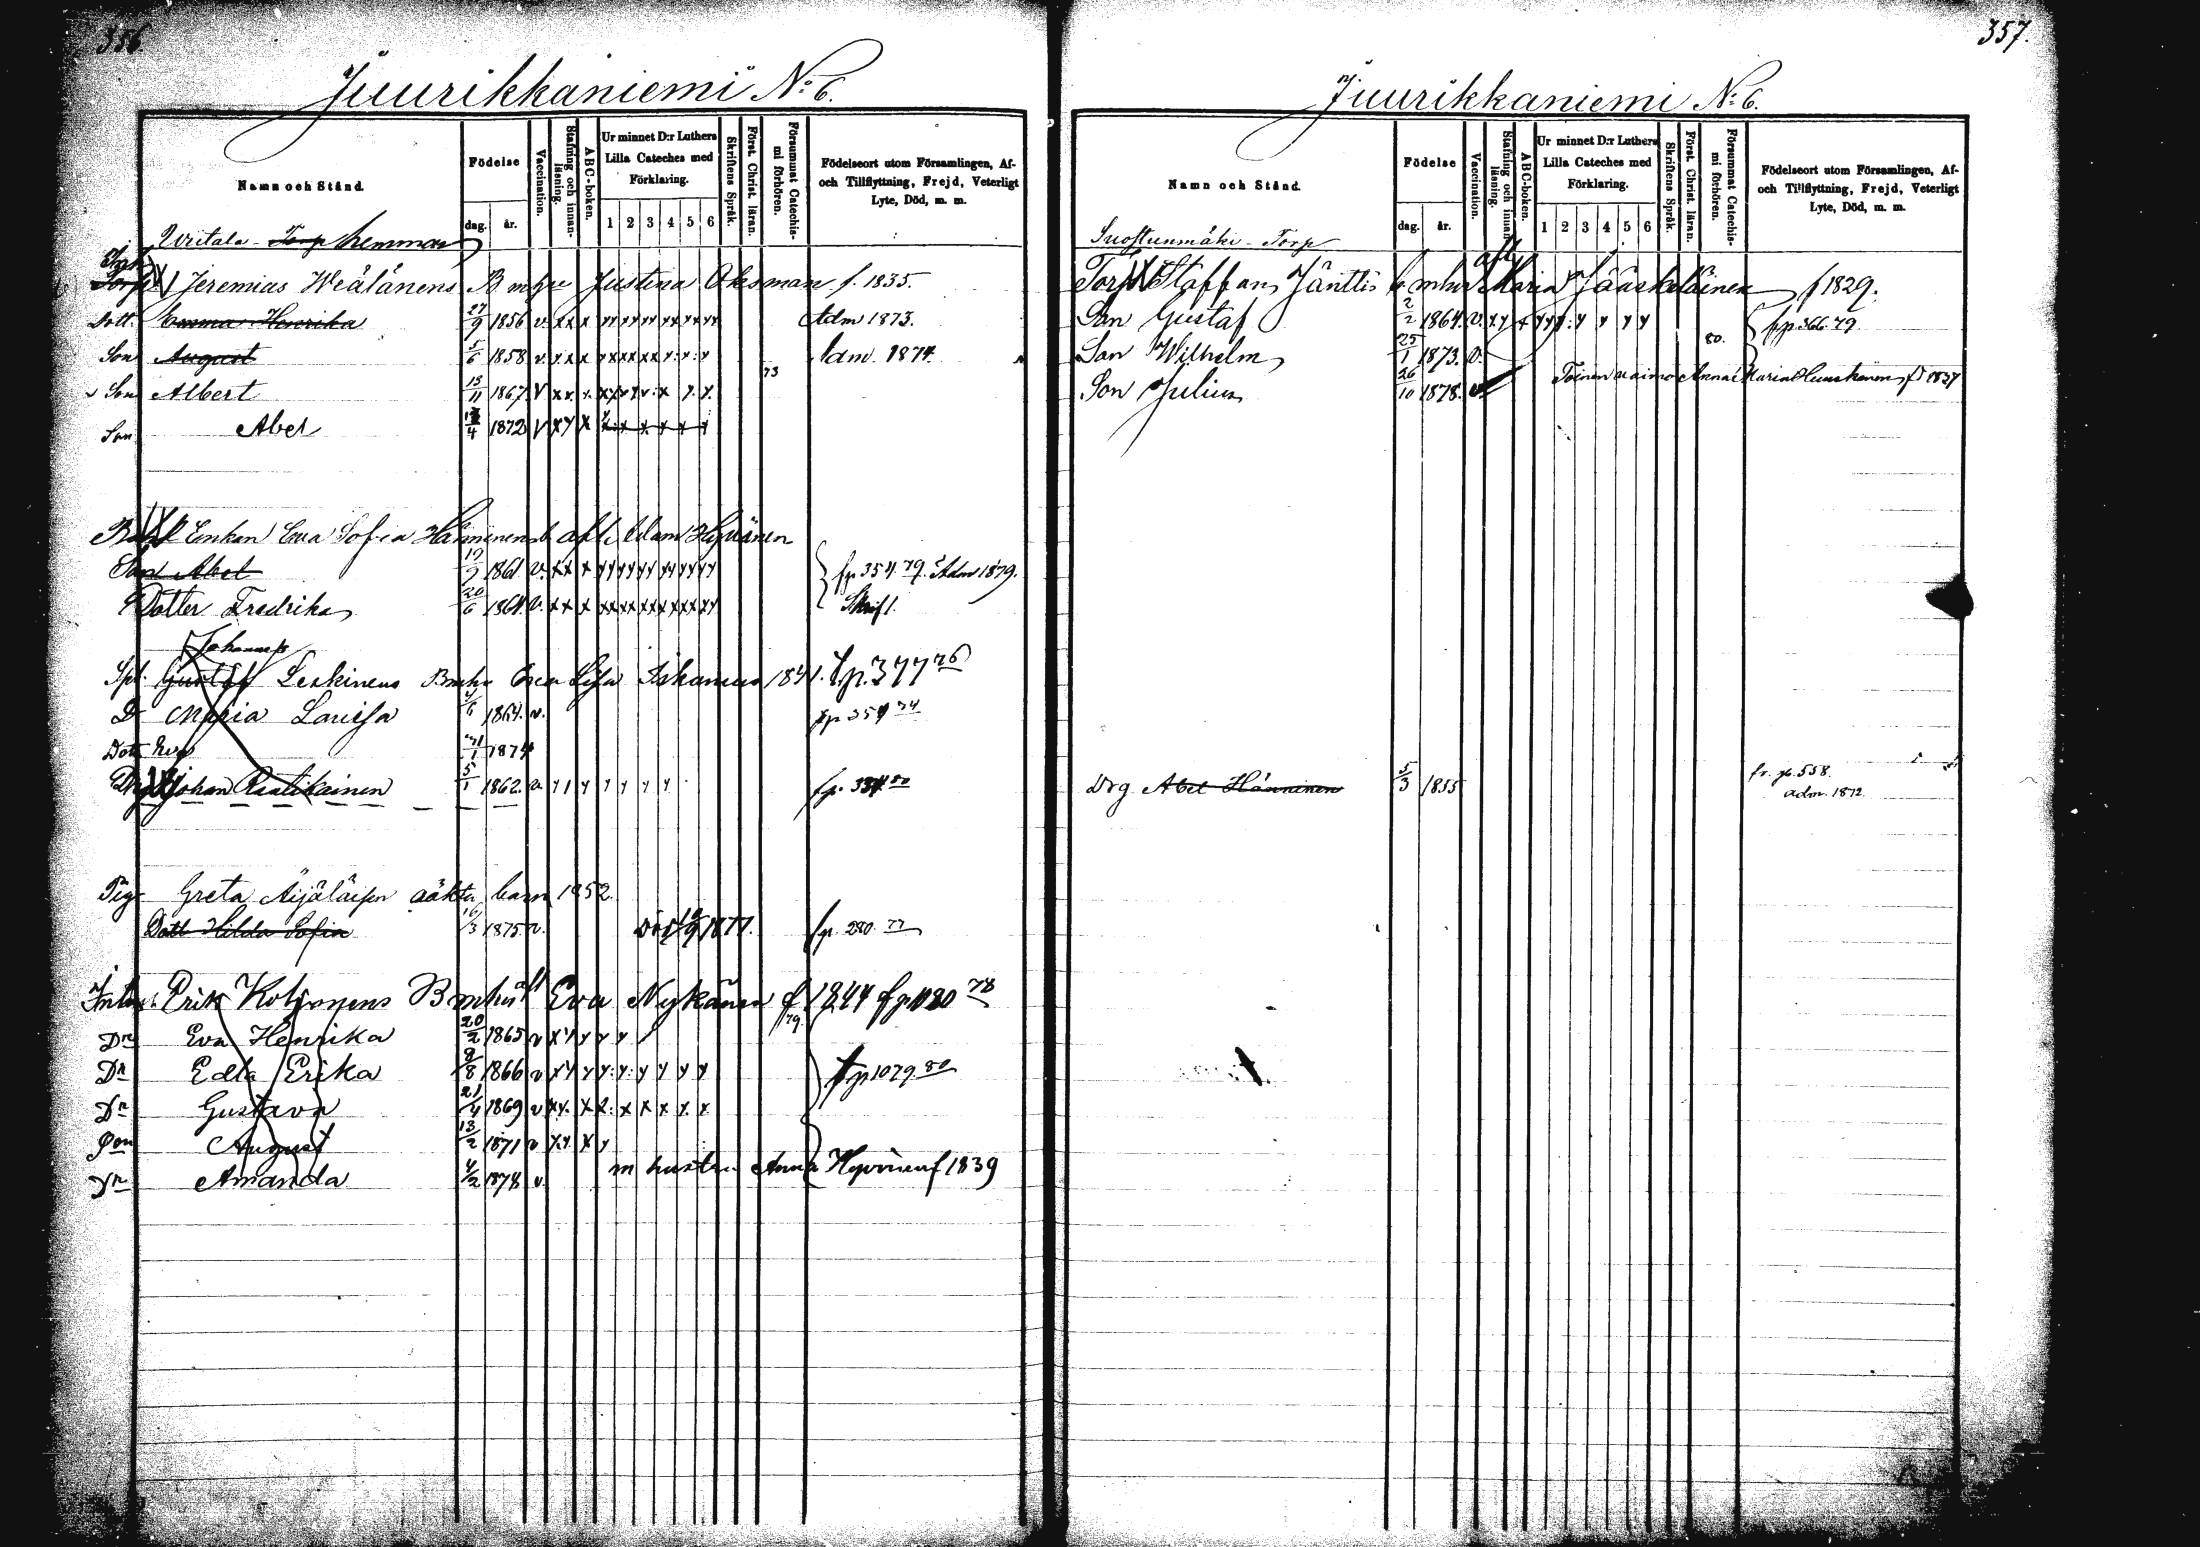 356.
Juurikkaniemi No: 6.
Namn och Stånd.
Födelse
dag. år.
Vaccination.
Stafning och innan-läsning.
ABC-boken.
Ur minnet D:r Luthers
Lilla Cateches med
Förklaring.
1 2 3 4 5 6
Skriftens Språk.
Först. Christ. läran.
Försummat Catechis-mi förhören.
Födelseort utom Församlingen, Af-
och Tillflyttning, Frejd, Veterligt
Lyte, Död, m. m.
Torp hemman
Jeremias Weälänens B m hu Justina Oksman f. 1835.
Dott. Emma Henrika 27/9 1856 v. Adm 1873.
Son August 5/6 1858 v. Adm 1874.
Son Albert 13/11 1867 v 73
Son Abel 4 1872 v
Enkan Ewa Sofia Hänninen afl. Adam Hyvänen
Son Abel 19/9 1861 v. fp 354 79. Adm 1879.
Dotter Fredrika 20/6 1864 v. Skrift.
Johannes
Gustaf Leskinens B m hu Eva Lisa Iskanius 1841. fp. 377 76
D Maria Lovisa 4/6 1864. v. fp 354 74
Dott Eva 1874
Johan Raatikainen 5/1 1862. v. fp. 354 80
Pig Greta Äijäläisen oäkta barn 1852
Dott Hilda Sofia 16/3 1875. v. Död 1877. fp. 280. 77
Erik Kotronens B m hu afl Eva Nykänen f 1844 fp 1080 78
79.
Dr Eva Henrika 20/2 1865 v
Dr Edla Erika 8/8 1866 v fp 1079 80
Dr Gustava 21/4 1869 v
Son August 13/2 1871 v
m hustru Anna Hyvönen f 1839
Dr Amanda 4/2 1878 v.
357.
Juurikkaniemi No: 6.
Namn och Stånd.
Födelse
dag. år.
Vaccination.
Stafning och innan-läsning.
ABC-boken.
Ur minnet D:r Luthers
Lilla Cateches med
Förklaring.
1 2 3 4 5 6
Skriftens Språk.
Först. Christ. läran.
Försummat Catechis-mi förhören.
Födelseort utom Församlingen, Af-
och Tillflyttning, Frejd, Veterligt
Lyte, Död, m. m.
Suostunmäki Torp
afl
Torp Staffan Jänttis b m hu Maria Jääskeläinen f 1829.
Son Gustaf 2/2 1864. v. fp. 366 79
80.
Son Wilhelm 25/1 1873. v.
Toinen vaimo Anna Maria Huuskonen f 1837
Son Julius 26/10 1878. v.
Drg Abel Hänninen 5/3 1855 fr. p. 558.
adm. 1872